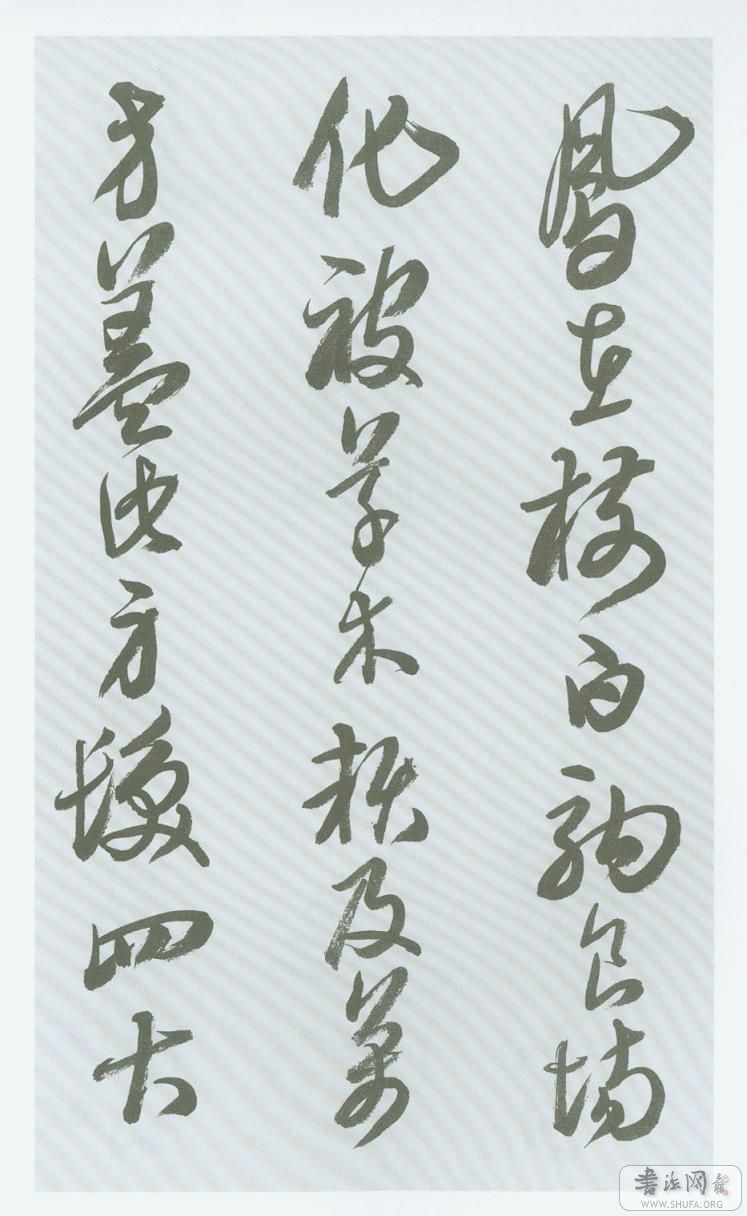 鳳在樹白駒食場
化被草木賴及萬
方蓋此身髮四大
書法网
WWW.SHUFA.ORG